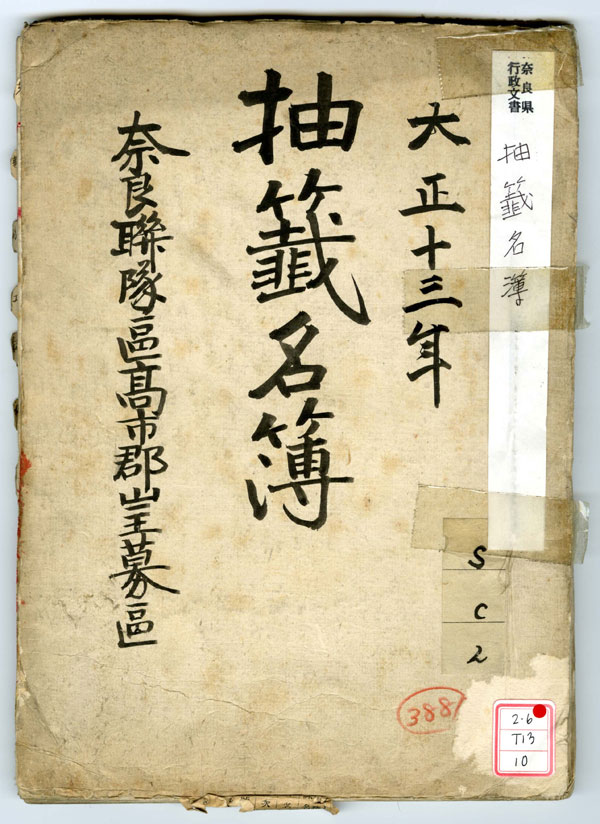 奈良県
行政文書
抽籤名簿
大正十三年
抽籤名簿
奈良聯隊區高市郡徴募區
S
C
2
388
2·6
T13
10